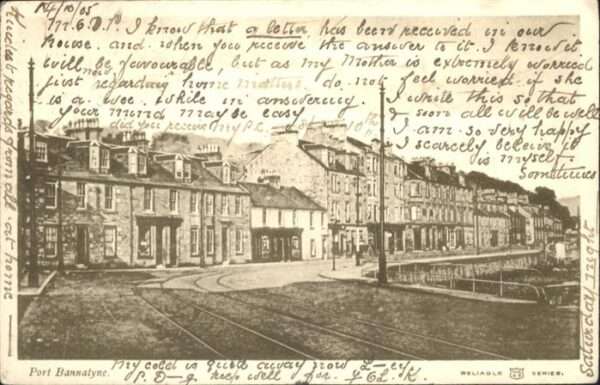 14/10/05
M.G.D.P. I know that a letter has been received in our
house. and. when you receive the answer to it. I know it
will, be favourable, but as my Mother is extremely worried
just now regarding home matters. do not feel worried if she
is a wee while in answering.
I write this so that
your mind may be easy
& soon all will be well
did you receive my P.C.
I am so very happy
I scarcely believe it
is myself.
Sometimes
Kindest regards from all at home
Saturday Night
My cold is quite away now
keep well
Port Bannatyne.
RELIABLE SERIES.